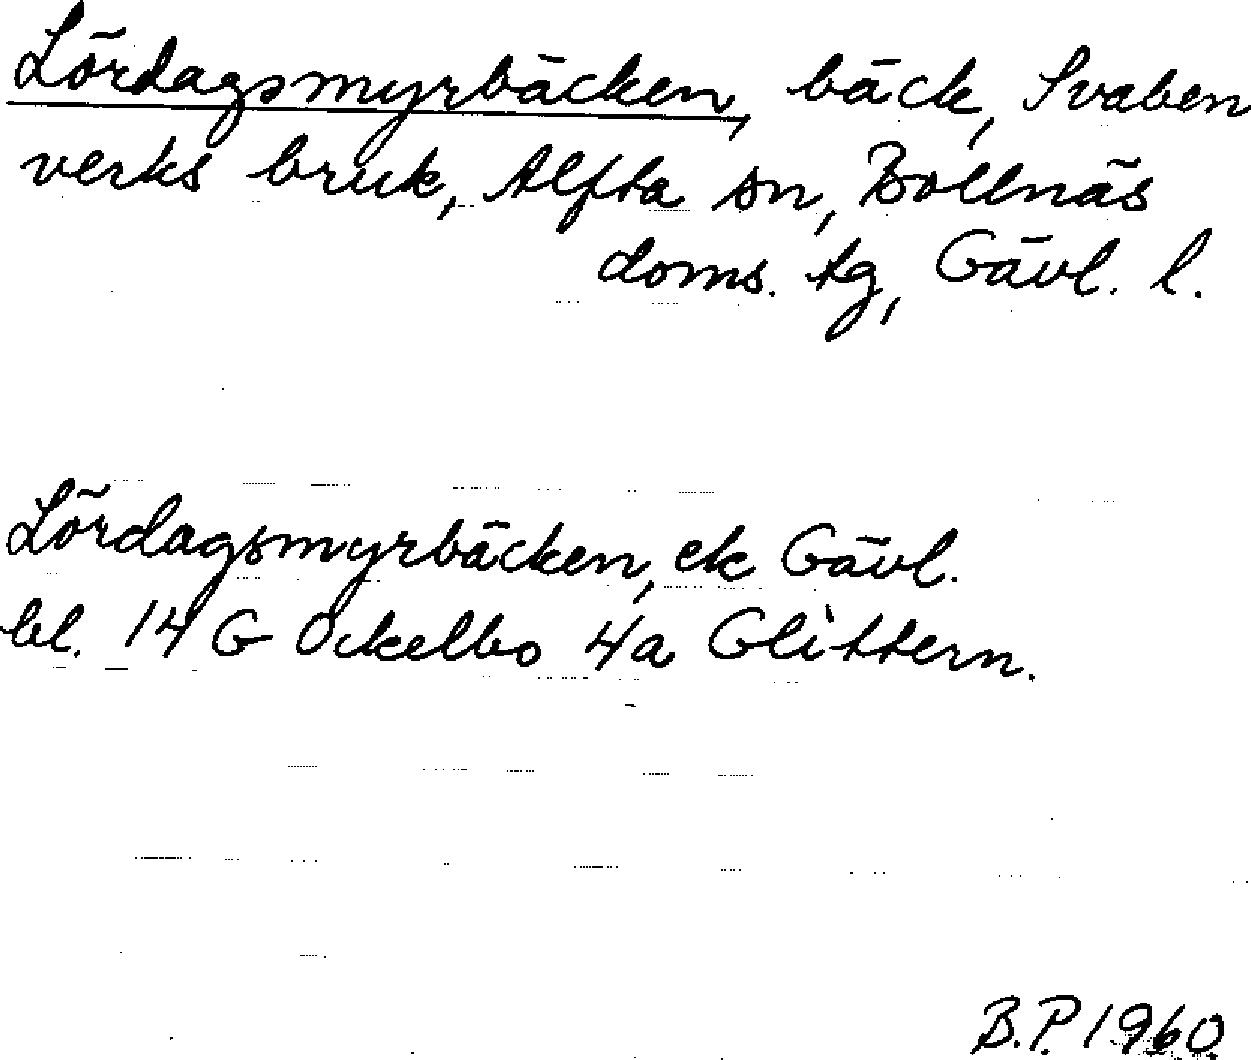 Lördagsmyrbäcken, bäck, Svaben
verks bruk, Alfta sn, Bollnäs
doms. tg, Gävl. l.
Lördagsmyrbäcken, ek Gävl.
bl. 14 G Ockelbo 4a Glittern.
B.P. 1960